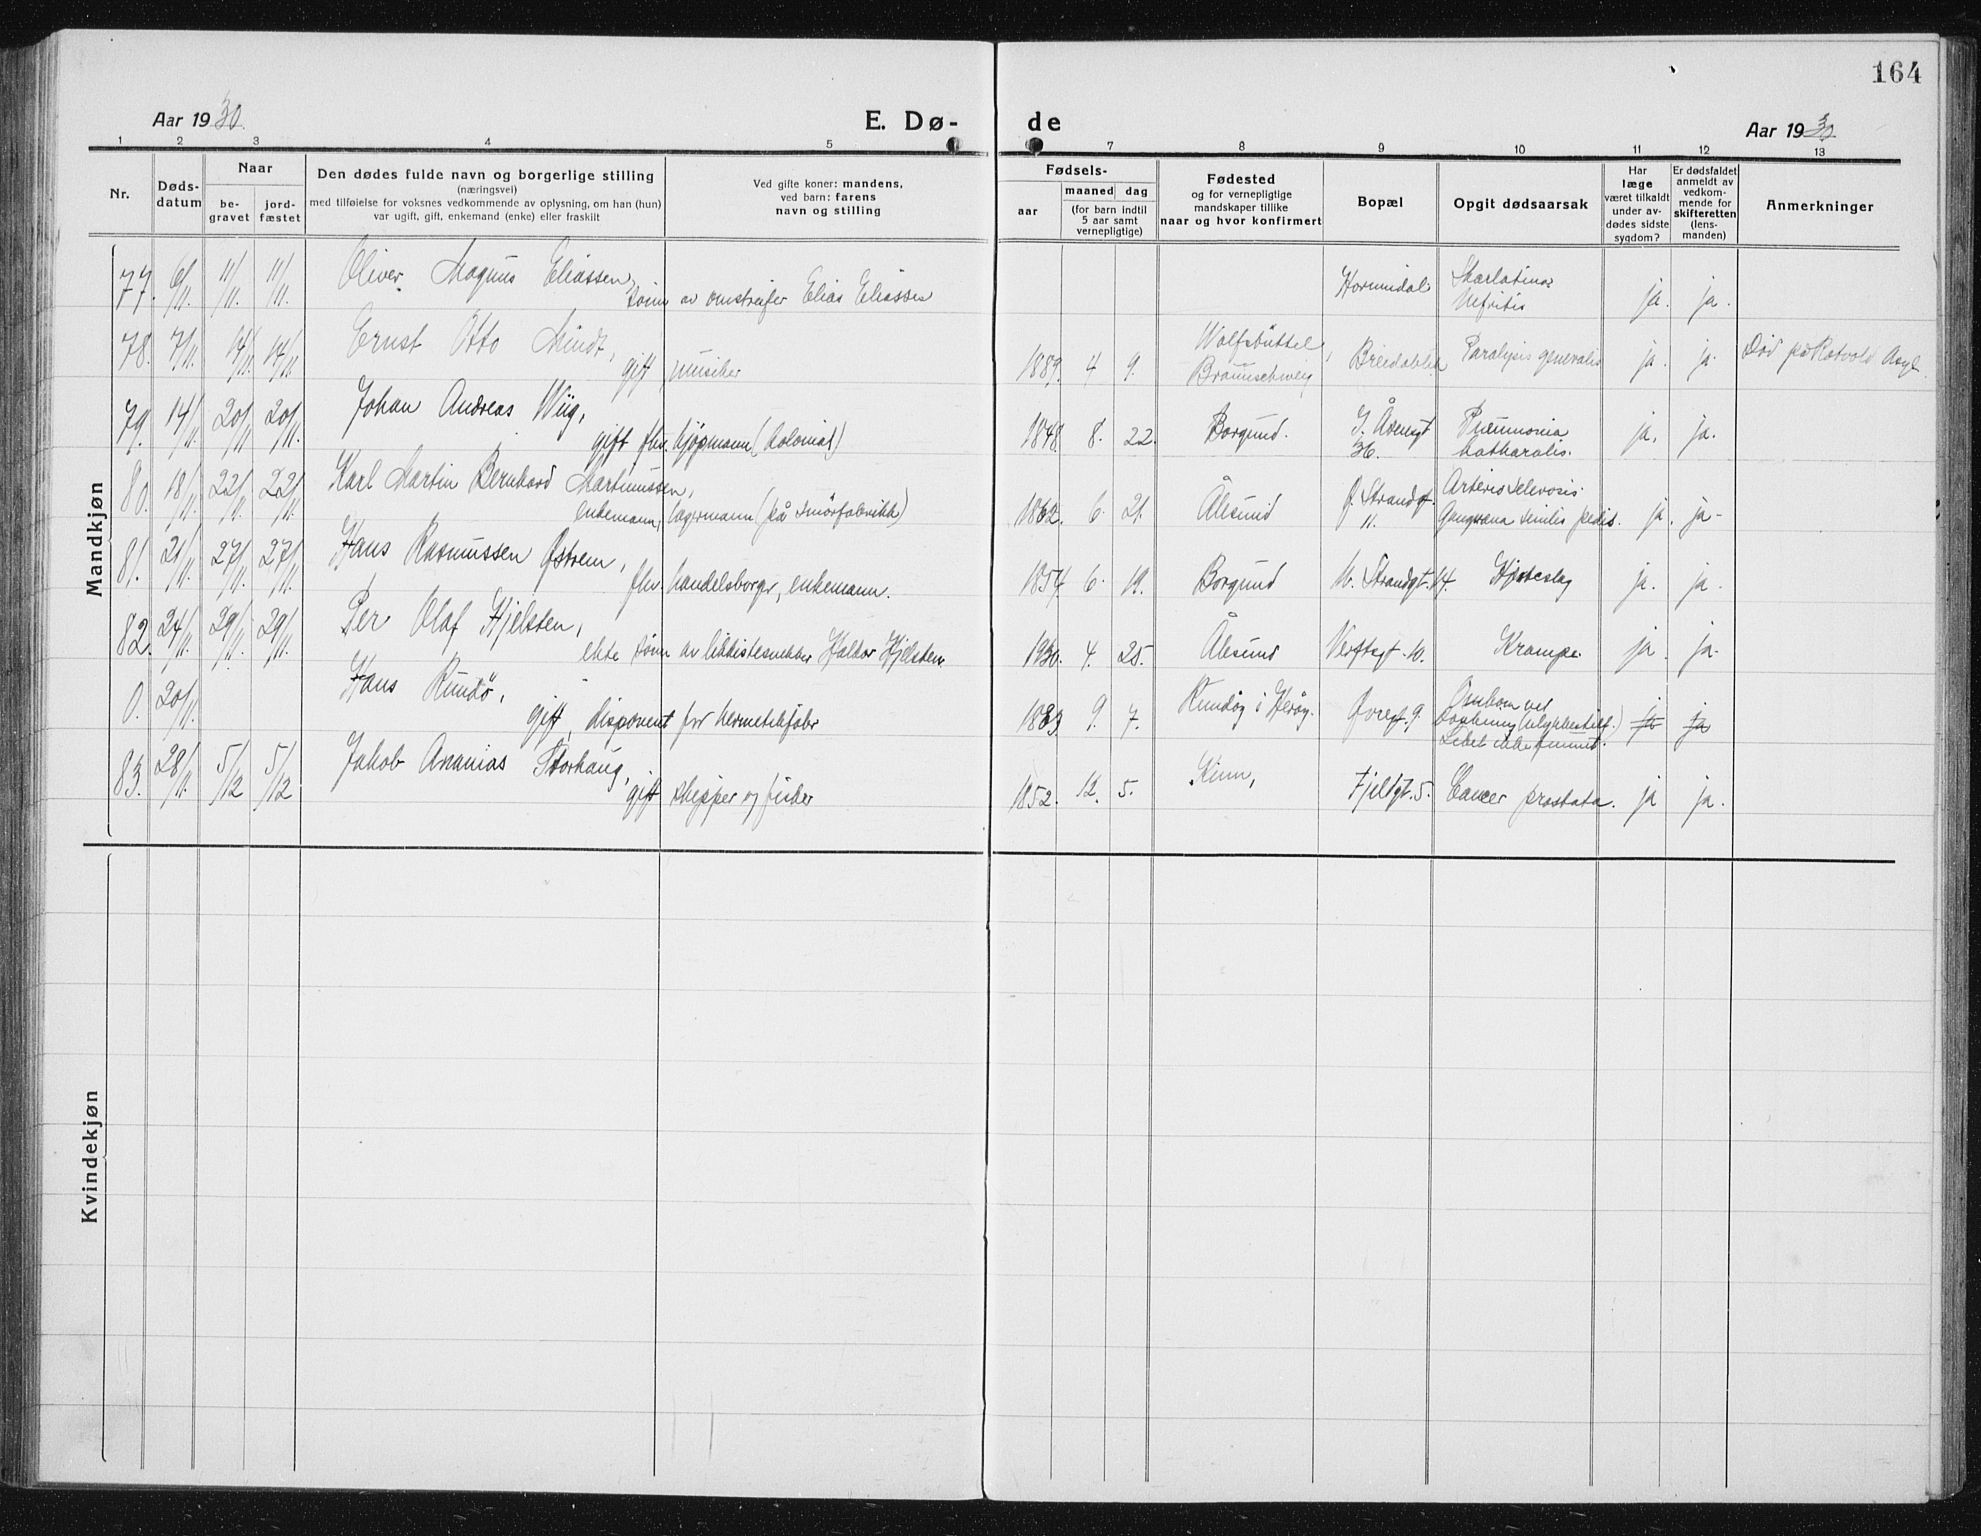 164
Aar 1930.
E. Dø-
de
Aar 1930
1 2 3 4 5 7 8 9 10 11 12 13
Nr.
Døds-
datum
Naar
be-
gravet
jord-
fæstet
Den dødes fulde navn og borgerlige stilling
(næringsvei)
med tilføielse for voksnes vedkommende av oplysning, om han (hun)
var ugift, gift, enkemand (enke) eller fraskilt
Ved gifte koner: mandens,
ved barn: farens
navn og stilling
Fødsels-
aar
maaned dag
(for barn indtil
5 aar samt
vernepligtige)
Fødested
og for vernepligtige
mandskaper tillike
naar og hvor konfirmert
Bopæl
Opgit dødsaarsak
Har
læge
været tilkaldt
under av-
dødes sidste
sygdom?
Er dødsfaldet
anmeldt av
vedkom-
mende for
skifteretten
(lens-
manden)
Anmerkninger
Mandkjøn
77. 6/11. 11/11. 11/11. Oliver Magnus Eliassen,
sønn av omstreifer Elias Eliassen
Hornindal Skarlatina
Nefritis ja. ja.
78. 7/11. 14/11. 14/11. Ernst Otto Mindt,
gift, musiker
1889. 4 9. Wolfsbüttel,
Braunschweig Breidablik Paralysis generalis ja. ja. Død på Rotvold Asyl.
79. 14/11. 20/11 20/11. Johan Andreas Wiig,
gift fhv. kjøpmann (kolonial)
1848. 8. 22. Borgund. 36. Pneumonia
katharalis. ja. ja.
80. 18/11. 22/11. 22/11. Karl Martin Bernhard Martinussen,
enkemann, lagermann (på smørfabrikk)
1862. 6. 21. Ålesund Ø. Strandgt.
11. Arterio sclerosis.
Gangræna senilis pedis. ja. ja.
81. 21/11. 27/11. 27/11. Hans Rasmussen Østrem,
fhv. handelsborger, enkemann.
1854. 6. 19. Borgund N. Strandgt. 14. Hjerteslag ja. ja.
82. 24/11. 29/11. 29/11. Per Olaf Hjelsten,
ekte sønn av likkistesnekker Haldor Hjelsten
1930. 4. 25. Ålesund Verftsgt. 10. Krampe. ja. ja.
0. 20/11. Hans Rundö,
gift, disponent for hermetikfabr
1883. 9. 7. Rundöy i Heröy. Øvregt. 9. Omkom ved
drukning (ulykkestilf.)
Liket ikke funnet. ja ja
83. 28/11. 5/12 5/12 Jakob Ananias Storhaug,
gift skipper og fisker
1852. 12. 5. Kinn, Fjellgt. 5. Cancer prostata. ja ja.
Kvindekjøn